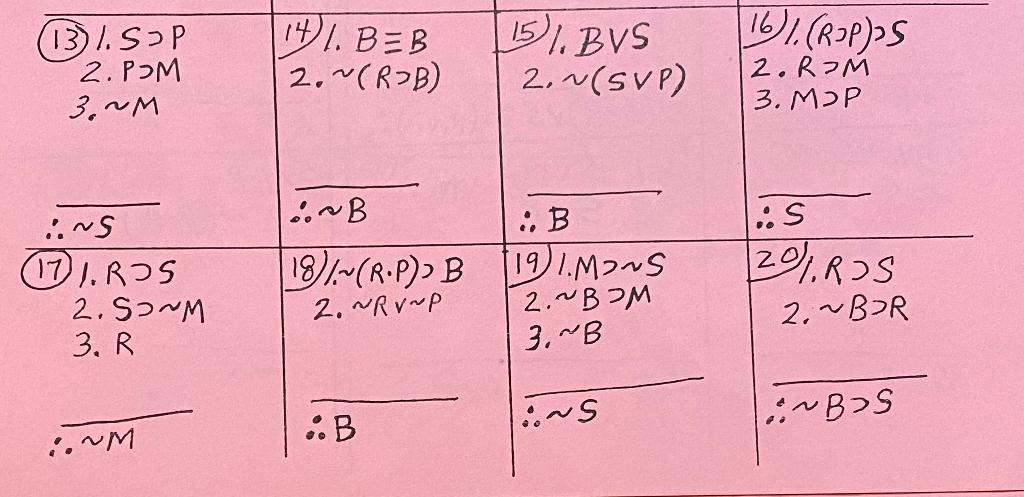 13) 1. S⊃P
2. P⊃M
3. ~M
∴ ~S
14) 1. B≡B
2. ~(R⊃B)
∴ ~B
15) 1. B∨S
2. ~(S∨P)
∴ B
16) 1. (R⊃P)⊃S
2. R⊃M
3. M⊃P
∴ S
17) 1. R⊃S
2. S⊃~M
3. R
∴ ~M
18) 1. ~(R·P)⊃B
2. ~R∨~P
∴ B
19) 1. M⊃~S
2. ~B⊃M
3. ~B
∴ ~S
20) 1. R⊃S
2. ~B⊃R
∴ ~B⊃S